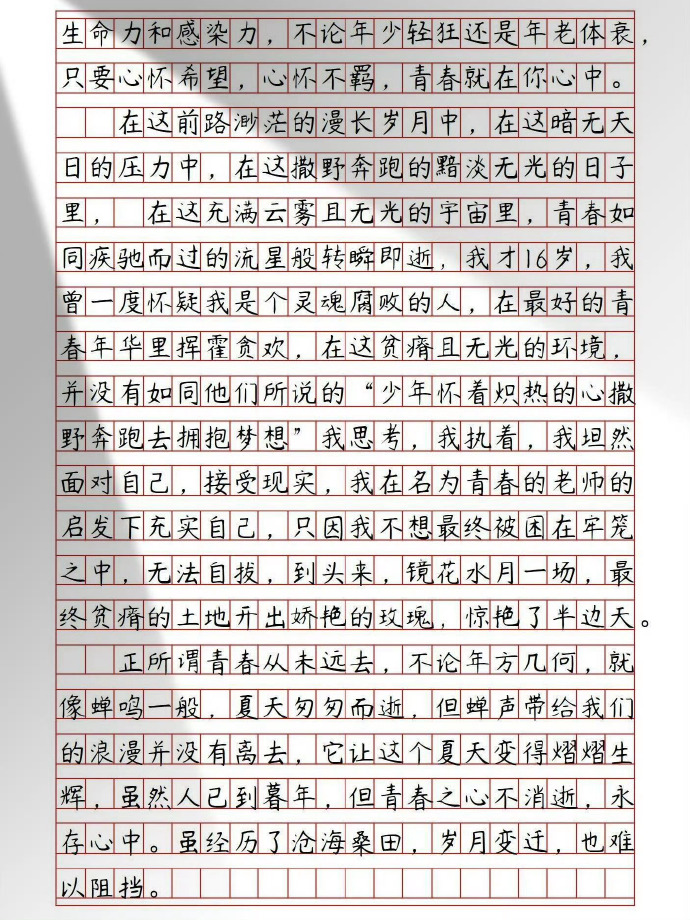 生命力和感染力，不论年少轻狂还是年老体衰，
只要心怀希望，心怀不羁，青春就在你心中。
在这前路渺茫的漫长岁月中，在这暗无天
日的压力中，在这撒野奔跑的黯淡无光的日子
里， 在这充满云雾且无光的宇宙里，青春如
同疾驰而过的流星般转瞬即逝，我才16岁，我
曾一度怀疑我是个灵魂腐败的人，在最好的青
春年华里挥霍贪欢，在这贫瘠且无光的环境，
并没有如同他们所说的“少年怀着炽热的心撒
野奔跑去拥抱梦想”我思考，我执着，我坦然
面对自己，接受现实，我在名为青春的老师的
启发下充实自己，只因我不想最终被困在牢笼
之中，无法自拔，到头来，镜花水月一场，最
终贫瘠的土地开出娇艳的玫瑰，惊艳了半边天。
正所谓青春从未远去，不论年方几何，就
像蝉鸣一般，夏天匆匆而逝，但蝉声带给我们
的浪漫并没有离去，它让这个夏天变得熠熠生
辉，虽然人已到暮年，但青春之心不消逝，永
存心中。虽经历了沧海桑田，岁月变迁，也难
以阻挡。